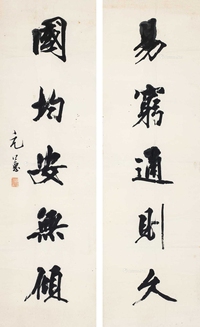 易窮通則久
國均安無傾